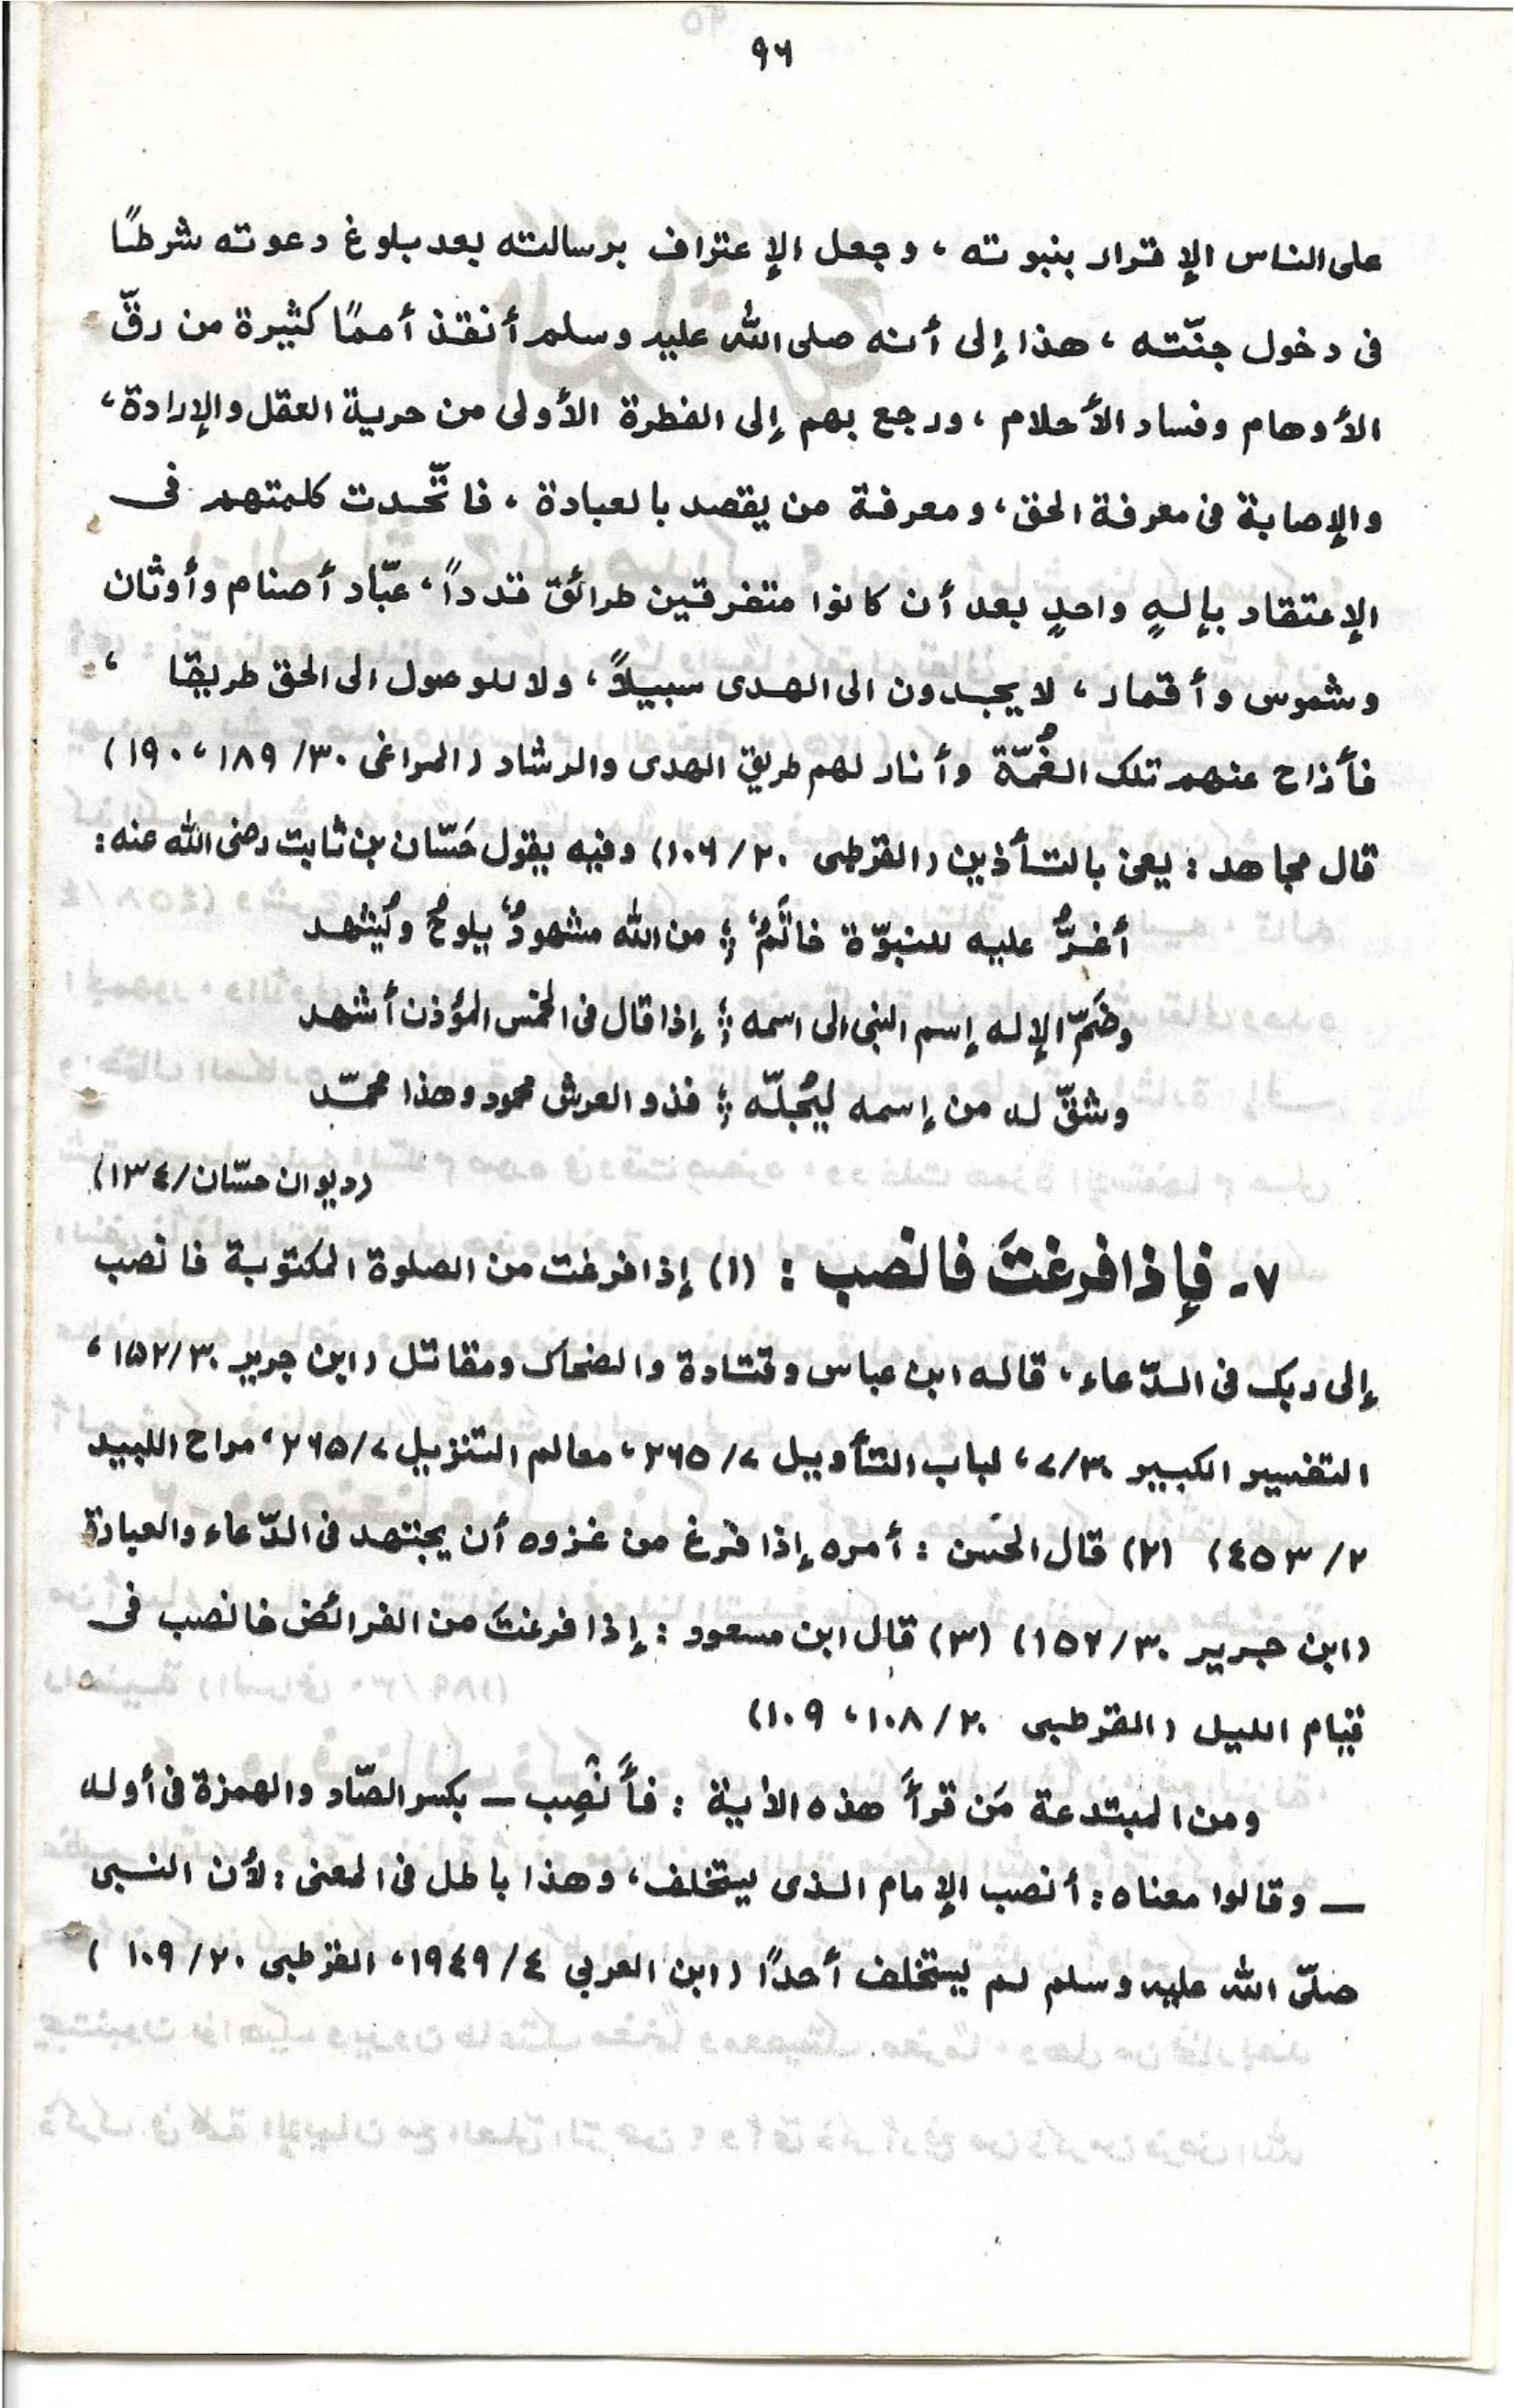 ٩٦
على الناس الإقرار بنبوته ، وجعل الإعتراف برسالته بعد بلوغ دعوته شرطًا
فى دخول جنّته ، هذا إلى أنه صلى الله عليه وسلم أنقذ أممًا كثيرة من رقّ
الأوهام وفساد الأحلام ، ورجع بهم إلى الفطرة الأولى من حرية العقل والإرادة ،
والإصابة فى معرفة الحق ، ومعرفة من يقصد بالعبادة ، فاتّحدت كلمتهم فى
الإعتقاد بإلهٍ واحدٍ بعد أن كانوا متفرقين طرائق قدداً ، عبّاد أصنام وأوثان
وشموس وأقمار ، لا يجدون الى الهدى سبيلاً ، ولا للوصول الى الحق طريقا ،
فأزاح عنهم تلك الغُمّة وأنار لهم طريق الهدى والرشاد (المراغى ٣٠/ ١٨٩ ، ١٩٠)
قال مجاهد : يعنى بالتأذين (القرطبى ٢٠/ ١٠٦) وفيه يقول حَسّان بن ثابت رضى الله عنه :
أغرُّ عليه للنبوّة خاتَمٌ ؛ من الله مشهودٌ يلوحُ ويُشهد
وضَمّ الإله إسم النبى الى اسمه ؛ إذا قال فى الخمس المؤذن أشهد
وشقّ له من إسمه ليُجلّه ؛ فذو العرش محمود وهذا محمّد
(ديوان حسّان/ ١٣٤)
٧- فإذا فرغتَ فانصب : (١) إذا فرغت من الصلوة المكتوبة فانصب
إلى ربك فى الدّعاء ، قاله ابن عباس وقتادة والضحاك ومقاتل (ابن جرير ٣٠/ ١٥٢ ،
التفسير الكبير ٣٠/ ٧ ، لباب التأويل ٧/ ٢٦٥ ، معالم التنزيل ٧/ ٢٦٥ ، مراح اللبيد
٢/ ٤٥٣) (٢) قال الحَسن : أمره إذا فرغ من غزوه أن يجتهد فى الدّعاء والعبادة
(ابن جرير ٣٠/ ١٥٢) (٣) قال ابن مسعود : إذا فرغتَ من الفرائض فانصب فى
قيام الليل (القرطبى ٢٠/ ١٠٨ ، ١٠٩)
ومن المبتدعة مَن قرأ هذه الأية : فأَنْصِب — بكسر الصّاد والهمزة فى أوله
— وقالوا معناه : أنصب الإمام الذى يستخلف ، وهذا باطل فى المعنى : لأن النبى
صلّى الله عليه وسلم لم يستخلف أحدًا (ابن العربي ٤/ ١٩٤٩ ، القرطبى ٢٠/ ١٠٩)